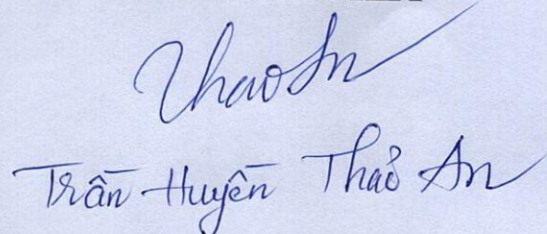 ThaoAn
Trần Huyền Thảo An